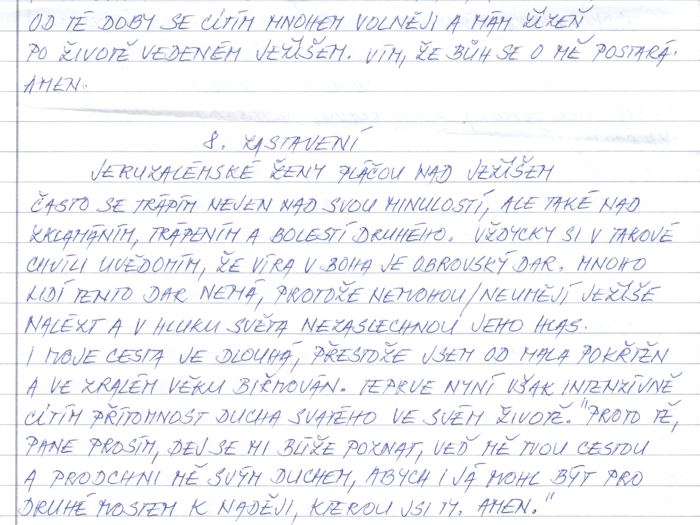 OD TÉ DOBY SE CÍTÍM MNOHEM VOLNĚJI A MÁM ŽÍZEŇ
PO ŽIVOTĚ VEDENÉM JEŽÍŠEM. VÍM, ŽE BŮH SE O MĚ POSTARÁ.
AMEN.
8. ZASTAVENÍ
JERUZALÉMSKÉ ŽENY PLÁČOU NAD JEŽÍŠEM
ČASTO SE TRÁPÍM NEJEN NAD SVOU MINULOSTÍ, ALE TAKÉ NAD
ZKLAMÁNÍM, TRÁPENÍM A BOLESTÍ DRUHÉHO. VŽDYCKY SI V TAKOVÉ
CHVÍLI UVĚDOMÍM, ŽE VÍRA V BOHA JE OBROVSKÝ DAR. MNOHO
LIDÍ TENTO DAR NEMÁ, PROTOŽE NEMOHOU/NEUMĚJÍ JEŽÍŠE
NALÉZT A V HLUKU SVĚTA NEZASLECHNOU JEHO HLAS.
I MOJE CESTA JE DLOUHÁ, PŘESTOŽE JSEM OD MALA POKŘTĚN
A VE ZRALÉM VĚKU BIŘMOVÁN. TEPRVE NYNÍ VŠAK INTENZÍVNĚ
CÍTÍM PŘÍTOMNOST DUCHA SVATÉHO VE SVÉM ŽIVOTĚ. "PROTO TĚ,
PANE PROSÍM, DEJ SE MI BLÍŽE POZNAT, VEĎ MĚ TVOU CESTOU
A PRODCHNI MĚ SVÝM DUCHEM, ABYCH I JÁ MOHL BÝT PRO
DRUHÉ MOSTEM K NADĚJI, KTEROU JSI TY. AMEN."